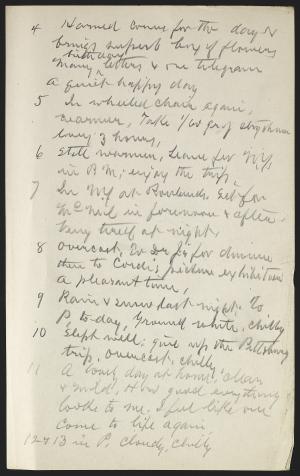 4 Harned comes for the day &
brings superb box of flowers
many birthday letters & one telegram
A quiet happy day
5 In wheeled chair again,
warmer, Take 1/60 gr of strychnine
every 3 hours,
6 Still warmer, Leave for N.Y.
in P.M.; enjoy the trip.
7 In N.Y. at Rowlands. Sit for
in forenoon & after-
tired at night.
8 Overcast, To Dr J's for dinner
then to picture exhibition
a pleasant time,
9 Rain & snow last night. To
P. to-day, Ground white, chilly
10 Slept well; give up the Pittsburg
trip, overcast, chilly
11 A lovely day at home, clear
& mild, How good everything
looks to me. I feel like one
come to life again.
12 & 13 in P. cloudy, chilly